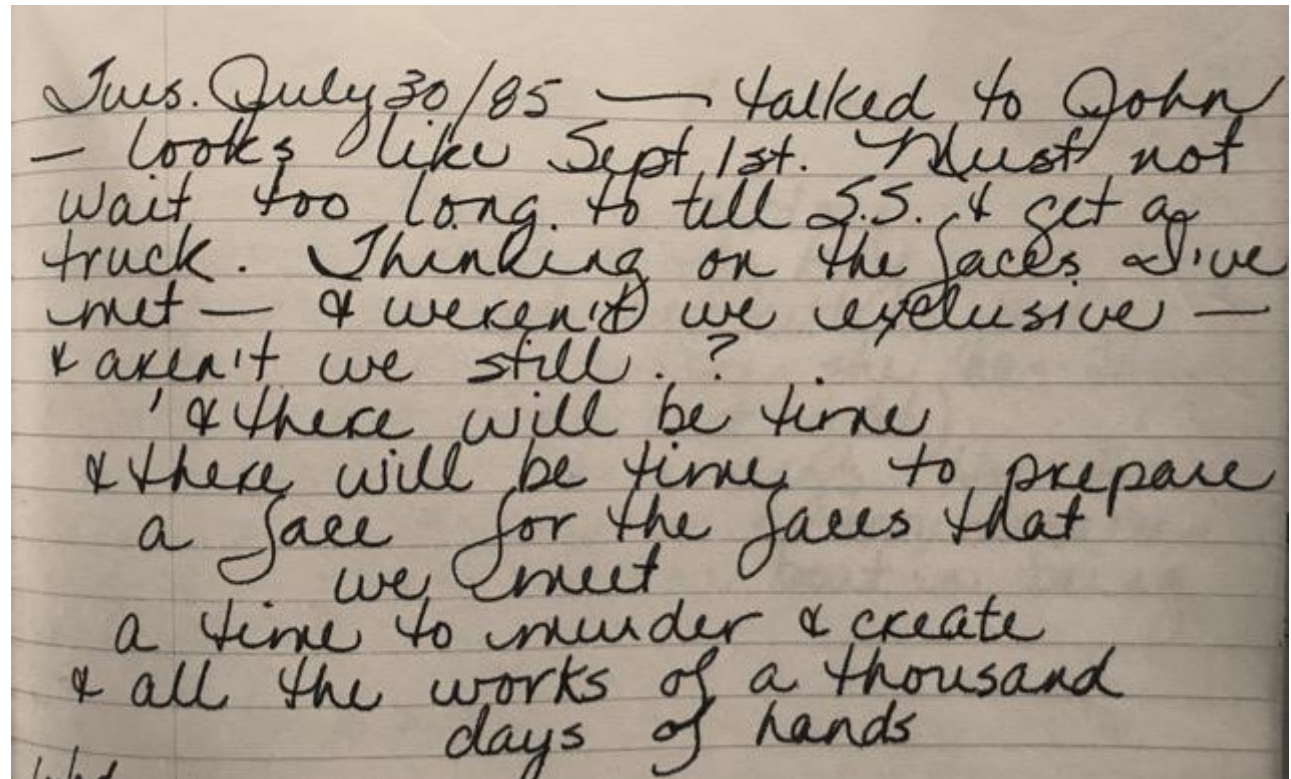 Tues. July 30/85 — talked to John
— looks like Sept 1st. Must not
wait too long. to tell S.S. & get a
truck. Thinking on the faces I've
met — & weren't we exclusive —
& aren't we still. ?
' & there will be time
& there will be time to prepare
a face for the faces that
we meet
a time to murder & create
& all the works of a thousand
days of hands